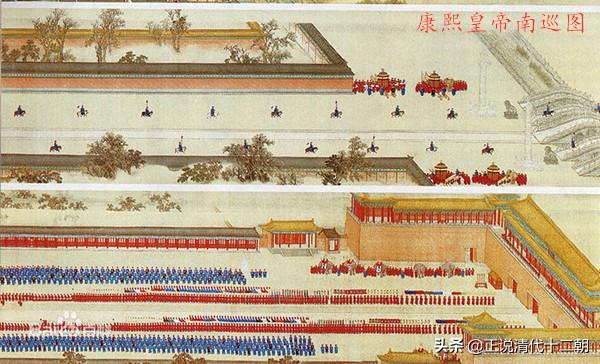 康熙皇帝南巡图
头条 @正说清代十二朝